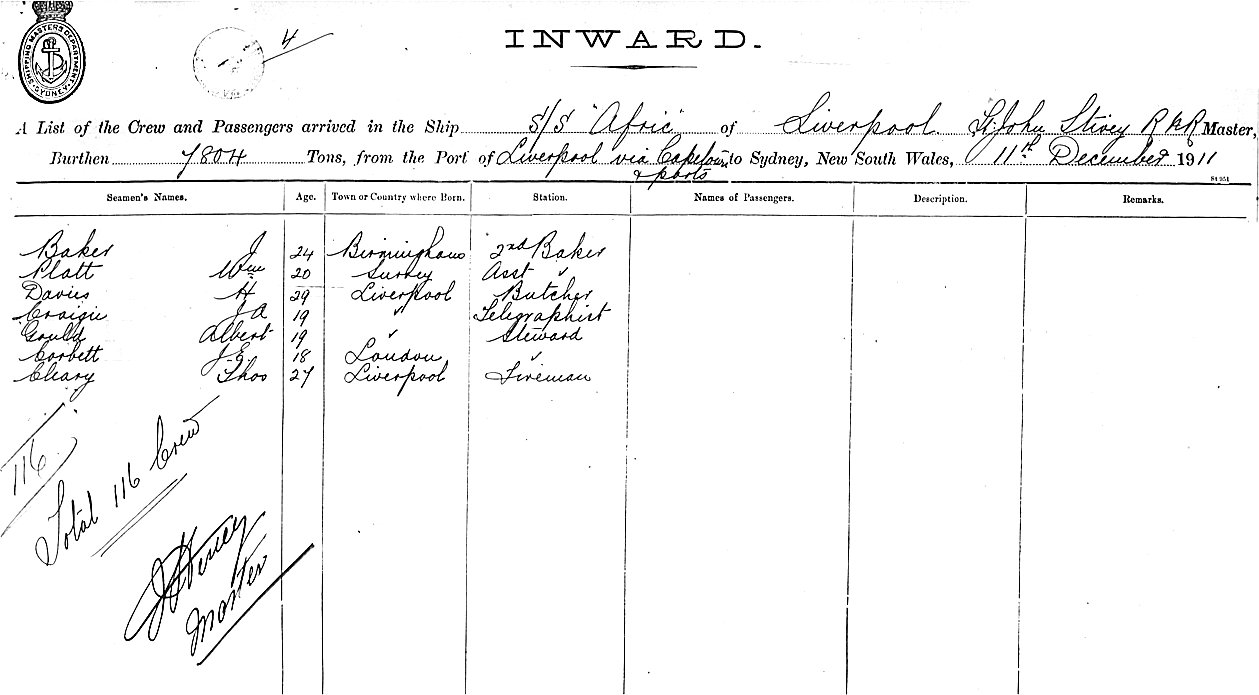 SHIPPING MASTERS DEPARTMENT SYDNEY
4
INWARD.
A List of the Crew and Passengers arrived in the Ship S/S "Afric" of Liverpool St John Stivey R N R Master,
Burthen 7804 Tons, from the Port of Liverpool via Capetown to Sydney, New South Wales, 11th December 1911
& ports
Seamen's Names. Age. Town or Country where Born. Station. Names of Passengers. Description. Remarks.
Baker J 24 Birmingham 2nd Baker
Platt Wm 20 Surrey Asst "
Davies H 29 Liverpool Butcher
Craigie J A 19 " Telegraphist
Gould Albert 19 " Steward
Corbett J.E. 18 London "
Cleary Thos 27 Liverpool Fireman
116
Total 116 Crew
Master